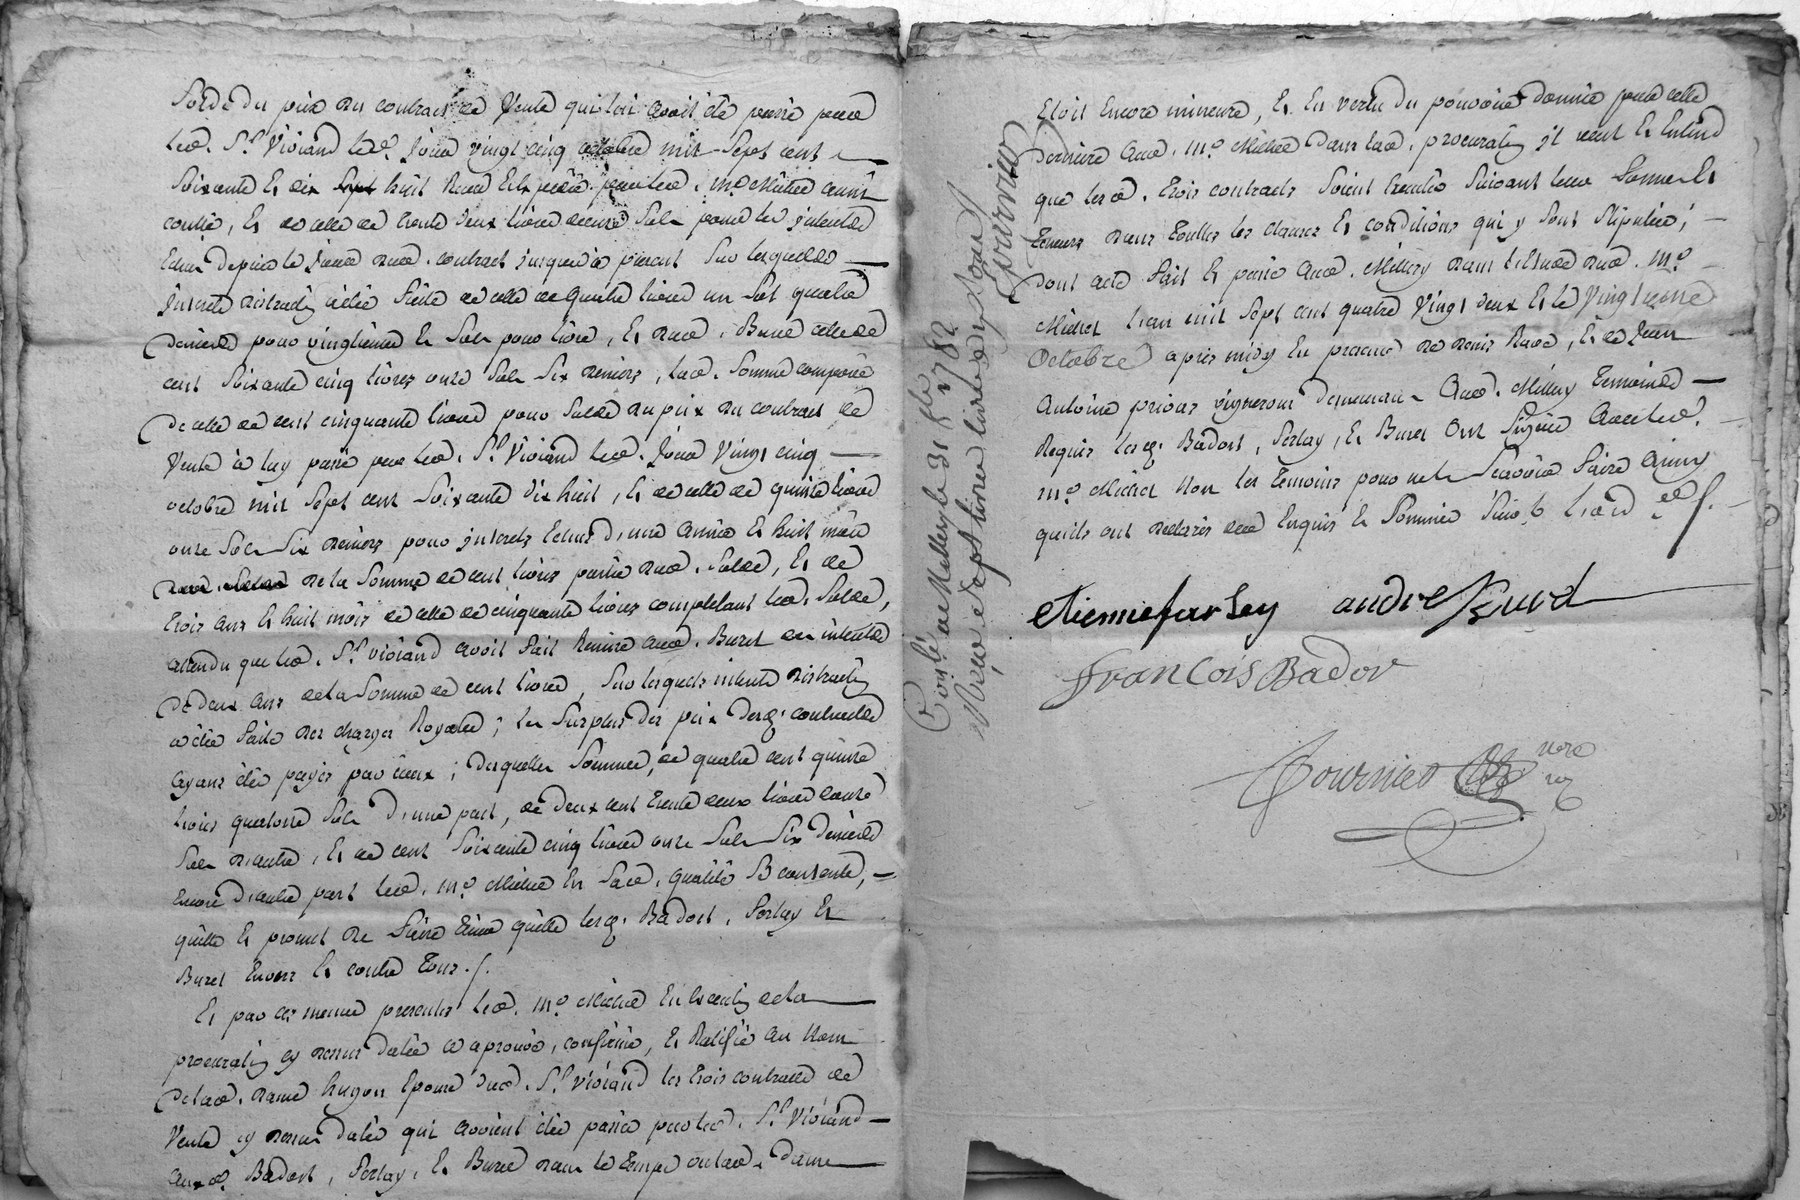 Solde du prix du contract de Vente qui lui avoit été passé par
led. Sr. Viviand led. Jour vingt cinq octobre mil Sept cent
Soixante et dix huit Recu et par led. me. Michel
et de celle de trente deux livres Sols pour les interets
Echus depuis le Jour dud. contract jusques a present Sur lesquelles
Interets distraction a été faite de celle de quatre livres un Sol quatre
deniers pour vingtieme et Sols pour livre, Et dud. Buret celle de
cent Soixante cinq livres onze Sols Six deniers, lad. Somme composée
de celle de cent cinquante livres pour Solde du prix du contract de
Vente à luy passé par led. Sr. Viviand led. Jour Vingt cinq
octobre mil Sept cent Soixante dix huit, Et de celle de quinze livres
onze Sols Six deniers pour interets Echus d'une année et huit mois
de la Somme de cent livres partie dud. Solde, Et de
trois ans et huit mois de celle de cinquante livres completant led. Solde,
attendu que led. Sr. Viviand avoit fait Remise aud. Buret des interets
de deux ans de la Somme de cent livres, Sur lesquels interets distraction
a été faite des charges Royales; le Surplus des prix desd. contracts
ayant été payés par eux; desquelles Sommes, de quatre cent quinze
livres quatorze Sols d'une part, de deux cent trente deux livres douze
Sols d'autre, Et de cent Soixante cinq livres onze Sols Six deniers
Encore d'autre part led. me. Michel En Sad. qualité S contente,
quitte et promet de faire tenir quitte lesd. Badort, Ferlay et
Buret Envers et contre tous./.
Et par ces memes presentes led. me. Michel En Execution de la
procuration cy dessus datée a aprouvé, confirmé, et Ratifié au Nom
de lad. dame hugon Epouse dud. Sr. Viviand les trois contracts de
Vente cy dessus datés qui avoient étés passés par led. Sr. Viviand
auxd. Badort, Ferlay, et Buret dans le temps ou lad. dame
Etoit Encore mineure, Et En vertu du pouvoir donné par cette
derniere aud. me. Michel dans lad. procuration il veut et Entend
que lesd. trois contracts Soient Executés Suivant leur forme et
teneurs dans toutes les clauses et conditions qui y Sont Stipulées;
dont acte fait et passé aud. Millery dans l'Etude dud. me.
Michel L'an mil Sept cent quatre Vingt deux Et le Vingt
Octobre après midy En presence de denis Rave, Et de Jean
Antoine priour vignerons demeurans Aud. Millery temoins
Requis lesd. Badort, Ferlay, et Buret Ont Signé Avec led.
me. Michel Non les temoins pour ne le Scavoir faire Ainsy
quils ont declarés de ce Enquis et Sommés Suiv. L'ord ce ./.
etienne farlay andre Burd
francois Bador
Fournier nore
Conlé a Millery le 31 8bre 1782.
Reçu Sept livres dix Sous
Fournier